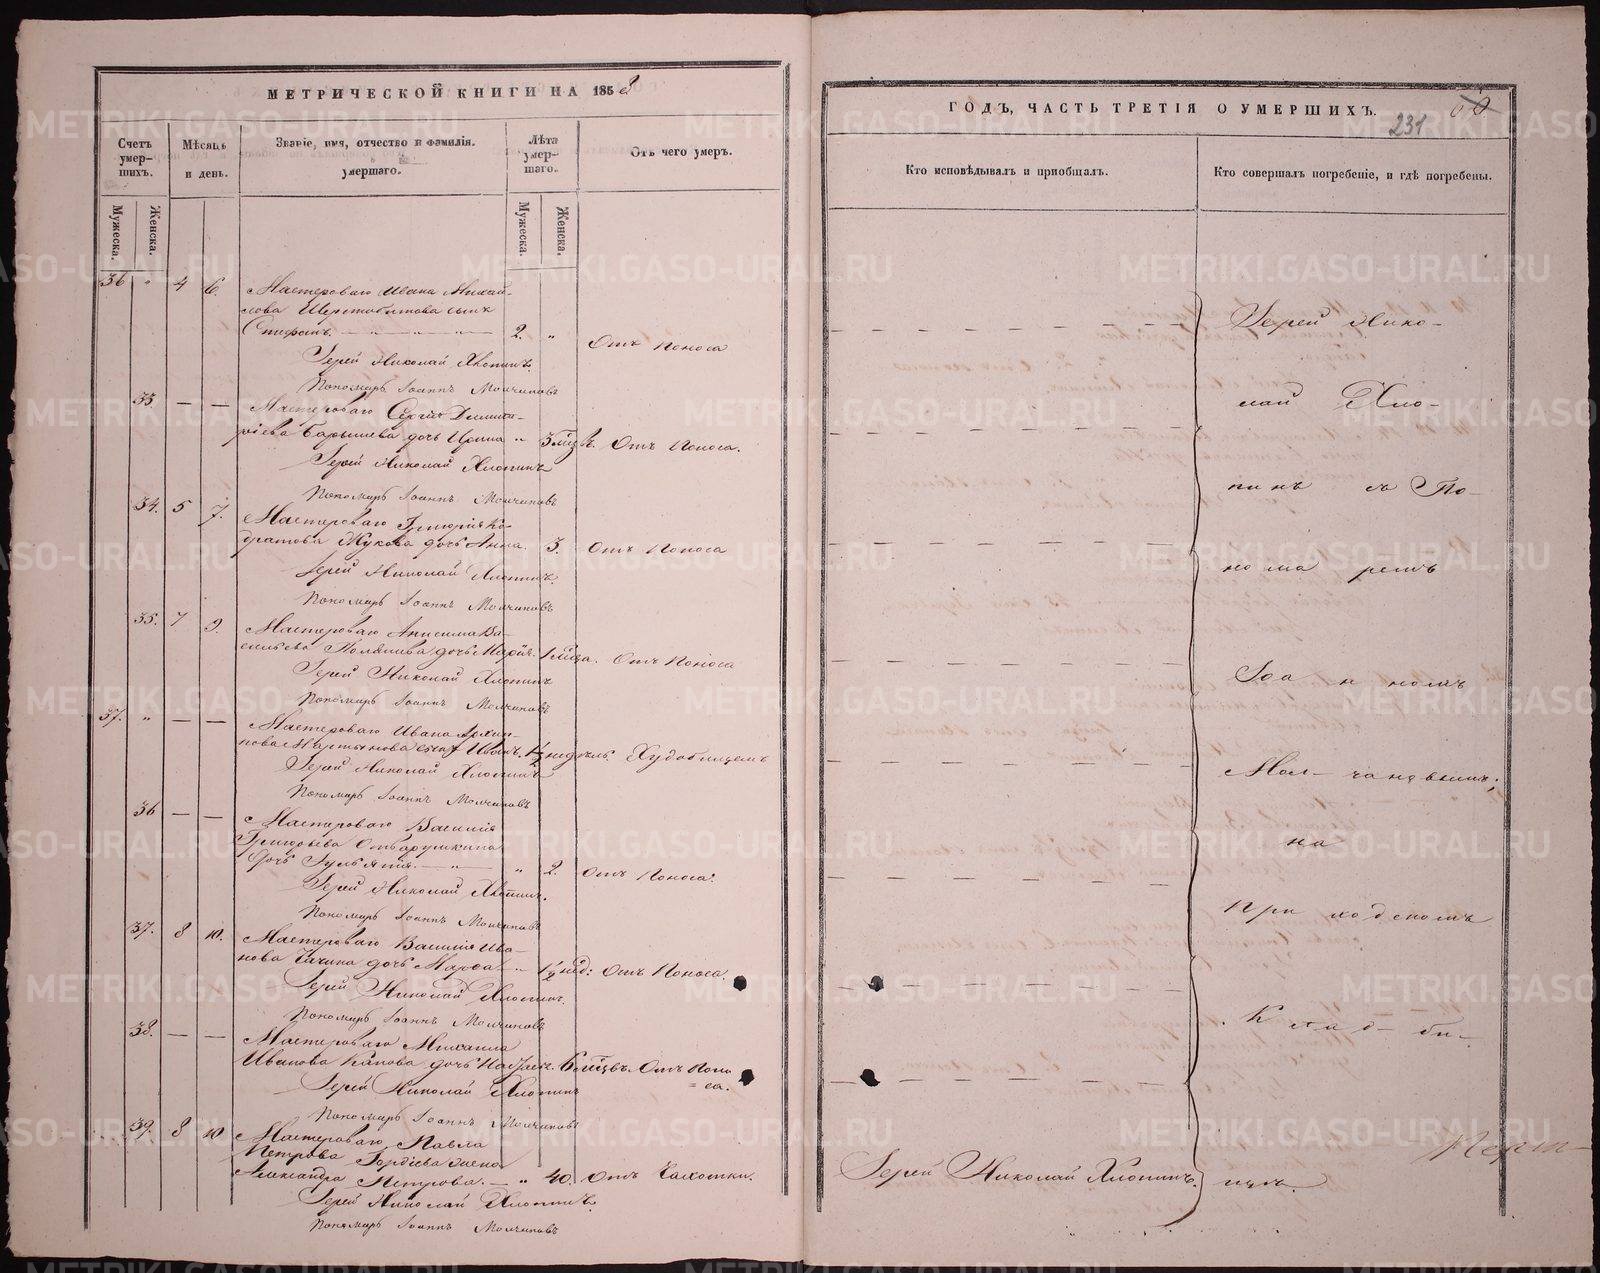 МЕТРИЧЕСКОЙ КНИГИ НА 1858
Счетъ умер-шихъ.
Мѣсяцъ и день.
Званіе, имя, отчество и фамилія умершаго.
Лѣта умер-шаго.
Отъ чего умеръ.
Мужеска. Женска.
Мужеска. Женска.
36 " 4 6. Мастероваго Ивана Михай-
лова Шерстобитова сынъ
Стефанъ. — " — " — " — 2. " Отъ поноса
Іерей Николай Хлопинъ.
Пономарь Іоаннъ Молчановъ
33. — — Мастероваго Сергія Димит-
ріева Барышева дочь Ирина " 3 мѣс. Отъ поноса.
Іерей Николай Хлопинъ
Пономарь Іоаннъ Молчановъ
34. 5 7. Мастероваго Григорія Ко-
дратова Жукова дочь Анна. 3. Отъ поноса
Іерей Николай Хлопинъ.
Пономарь Іоаннъ Молчановъ
35. 7 9. Мастероваго Анисима Ва-
сильева дочь Марія. 1 мѣсяца. Отъ поноса
Іерей Николай Хлопинъ
Пономарь Іоаннъ Молчановъ
37. " — — Мастероваго Ивана Архип-
пова Мартьянова сынъ Иванъ. 1½ недѣль.
Іерей Николай Хлопинъ
Пономарь Іоаннъ Молчановъ
36 — — Мастероваго Василія
Григорьева
дочь — " " 2. Отъ поноса.
Іерей Николай Хлопинъ.
Пономарь Іоаннъ Молчановъ
37. 8 10. Мастероваго Василія Ива-
нова дочь Марѳа — " 1½ нед: Отъ поноса.
Іерей Николай Хлопинъ.
Пономарь Іоаннъ Молчановъ
38. — — Мастероваго Михаила
Иванова дочь 6 мѣсцвъ. Отъ поно
=са.
Іерей Николай Хлопинъ
Пономарь Іоаннъ Молчановъ
39. 8 10 Мастероваго Павла
Петрова Гордѣева жена
Александра Петрова. — " 40. Отъ чахотки.
Іерей Николай Хлопинъ.
Пономарь Іоаннъ Молчановъ
ГОДЪ, ЧАСТЬ ТРЕТІЯ О УМЕРШИХЪ.
231
Кто исповѣдывалъ и пріобщалъ.
Кто совершалъ погребеніе, и гдѣ погребены.
Іерей Нико-
лай Хло-
пинъ съ По-
номаремъ
Іоанномъ
Мол-чановымъ;
на
приходскомъ
Клад-би-
Іерей Николай Хлопинъ.
METRIKI.GASO-URAL.RU